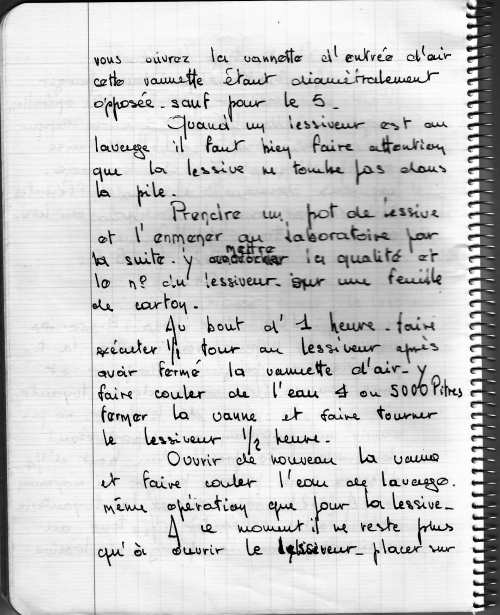 vous ouvrez la vannette d'entrée d'air
cette vannette étant diamètralement
opposée. sauf pour le 5_
Quand un lessiveur est au
lavage il faut bien faire attention
que la lessive ne tombe pas dans
la pile.
Prendre un pot de lessive
et l'emmener au laboratoire par
la suite. y mettre la qualité et
le nº du lessiveur_ sur une feuille
de carton.
Au bout d'1 heure. faire
exécuter 1/1 tour au lessiveur après
avoir fermé la vannette d'air_ y
faire couler de l'eau 4 ou 5000 litres
fermer la vanne et faire tourner
le lessiveur 1/2 heure.
Ouvrir de nouveau la vanne
et faire couler l'eau de lavage.
même opération que pour la lessive_
A ce moment il ne reste plus
qu'à ouvrir le lessiveur_ placer sur